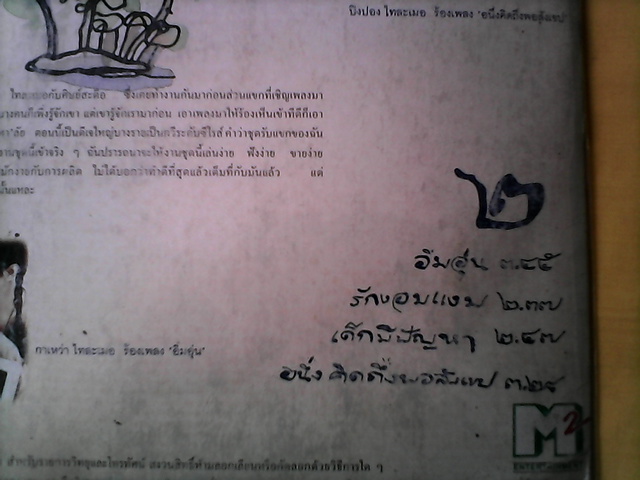 ปิงปอง ไทละเมอ ร้องเพลง "อนึ่งคิดถึงพอสังเขป"
ไทละเมอกับศิษย์สะดือ ซึ่งเคยทำงานกันมาก่อนส่วนแขกที่เชิญเพลงมา
บางคนก็เพิ่งรู้จักเขา แต่เขารู้จักเรามาก่อน เอาเพลงมาให้ร้องเห็นเข้าทีดีก็เอา
ตอนนี้เป็นดีเจใหญ่บางรายเป็น คำว่าชุดรับแขกของฉัน
งานชุดนี้เข้าจริง ๆ ฉันปรารถนาจะให้งานชุดนี้เล่นง่าย ฟังง่าย ขายง่าย
กับการผลิต ไม่ได้บอกว่าทำดีที่สุดแล้วเต็มที่กับมันแล้ว แต่
นั้นแหละ
๒
อิ่มอุ่น ๓.๔๕
รักงอมแงม ๒.๓๗
เด็กมีปัญหา ๒.๔๗
อนึ่ง คิดถึงพอสังเขป ๓.๒๔
กาเหว่า ไทละเมอ ร้องเพลง "อิ่มอุ่น"
M2
ENTERTAINMENT
สำหรับรายการวิทยุและโทรทัศน์ สงวนสิทธิ์ห้ามลอกเลียนหรือคัดลอกด้วยวิธีการใด ๆ